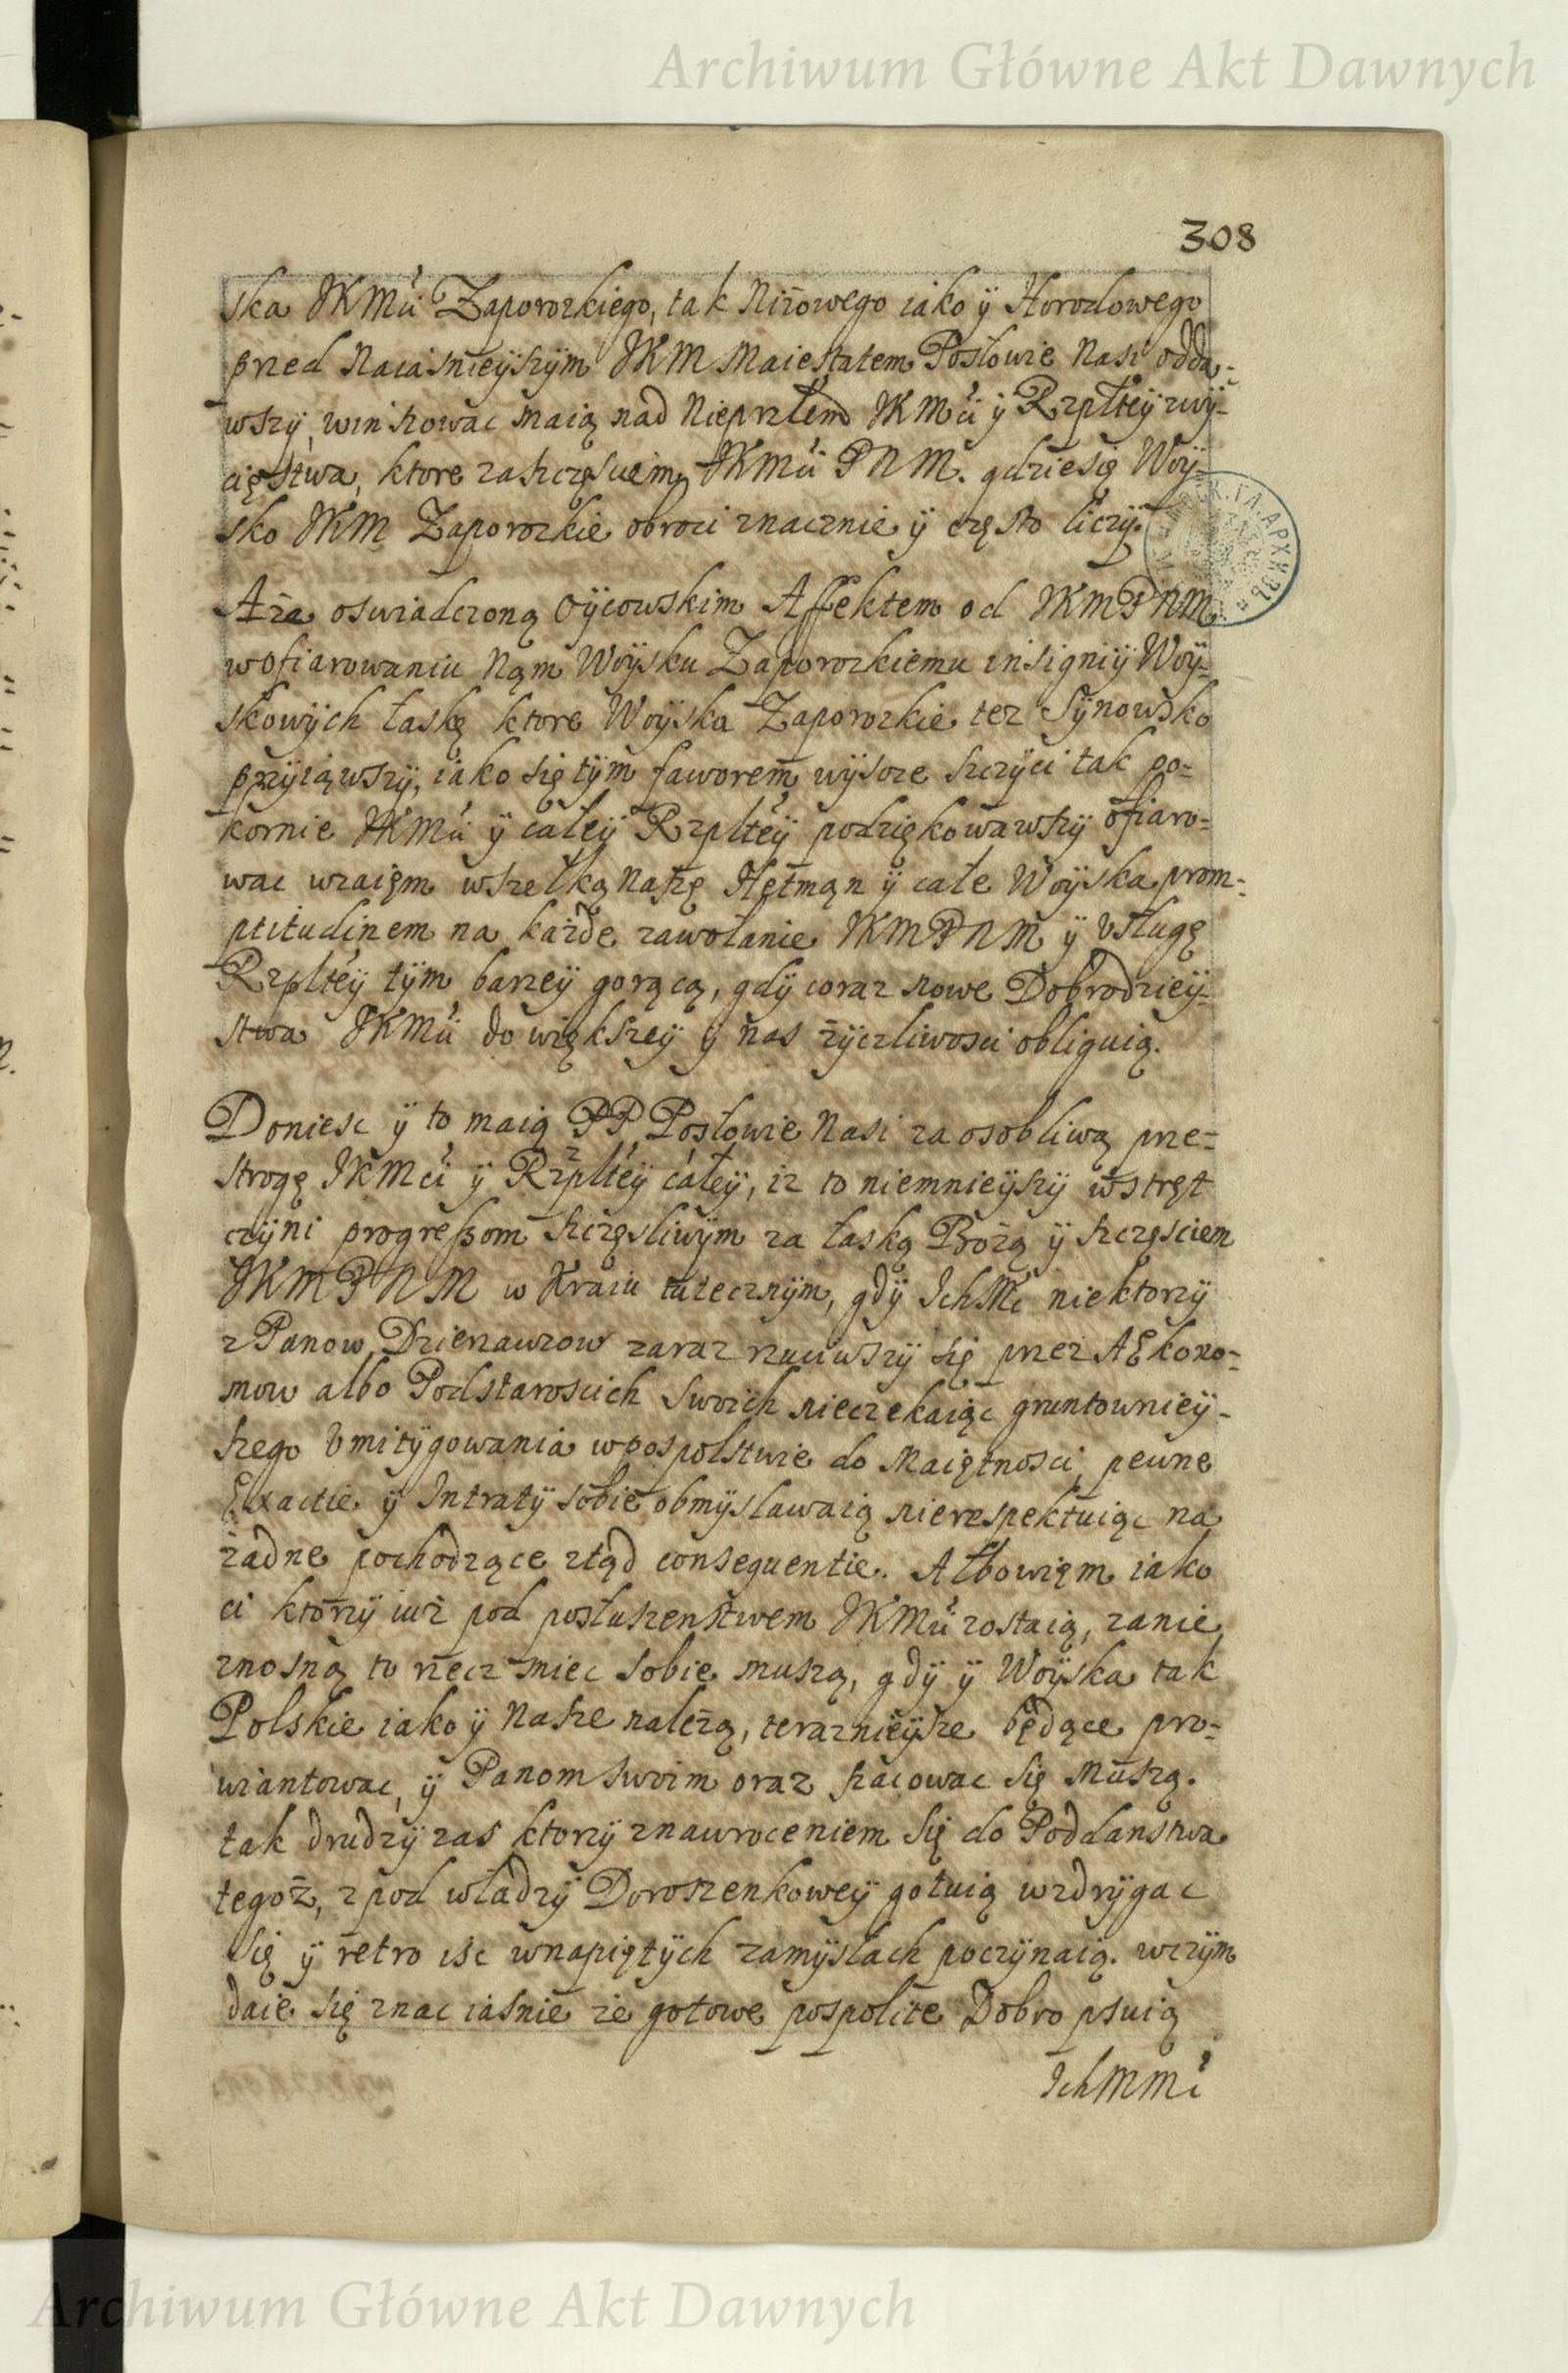 Archiwum Główne Akt Dawnych
308
ska JKMci Zaporozkiego, tak Niżowego iako ÿ Horodowego
przed Naiaśnieÿszÿm JKM Maiestatem Posłowie Nasi odda-
wszÿ, winszowac maią nad Nieprzłem JKMci ÿ Rzplteÿ zwÿ-
cięstwa, ktore za szczęsciem JKMci PNM. gdziesię Woÿ-
sko JKM Zaporozkie obroci znacznie ÿ często liczÿ.
A za oswiadczoną Oÿcowskim Affektem od JKMPNM
w ofiarowaniu Nąm Woÿsku Zaporozkiemu insigniÿ Woÿ-
skowÿch łaskę ktore Woÿska Zaporozkie tez Sÿnowsko
przÿiąwszÿ, iako się tÿm faworem wÿsoce szczÿci tak po-
kornie JKMci ÿ całeÿ Rzplteÿ podziękowawszÿ ofiaro-
wac wzaięm wszelką naszę Hetmąn ÿ całe Woÿska prom-
ptitudinem na każde zawołanie JKMPNM ÿ Vsługę
Rzplteÿ tÿm barzeÿ gorącą, gdÿ coraz nowe Dobrodzieÿ-
stwa JKMci do większeÿ ÿ nas żÿczliwosci obliguią.
Doniesc ÿ to maią PP Posłowie Nasi za osobliwą prze-
strogę JKMci ÿ Rzplteÿ całeÿ, iz to niemnieÿszÿ wstręt
czÿni progressom szczęsliwÿm za łaską Bożą ÿ szczęsciem
JKMPNM w Kraiu tutecznÿm, gdÿ IchMc niektorzÿ
z Panow Dzierzawcow zaraz rzuciwszÿ się przez AEkono-
mow albo Podstaroscich swoich nieczekaiąc gruntownieÿ-
szego Vmitÿgowania w pospolstwie do Maiętnosci, pewne
Exactie ÿ Intratÿ sobie obmÿslawaią nierespektuiąc na
żadne pochodzące ztąd consequentie. Albowięm iako
ci ktorzÿ iuż pod posłuszenstwem JKMci zostaią, zanie
znosną to rzecz miec sobie muszą, gdÿ ÿ Woÿska tak
Polskie iako ÿ Nasze należą, teraznieÿsze będące pro-
wiantowac, ÿ Panom swoim oraz składac się Muszą.
tak drudzÿ zas ktorzÿ znawroceniem się do Poddanstwa
tegoż, z pod władzÿ Doroszenkoweÿ gotuią wzdrÿgac
się ÿ retro isc wnapiętÿch zamÿsłach poczÿnaią. wczÿm
daie się znac iasnie że gotowe pospolite Dobro psuią
IchMMc
Archiwum Główne Akt Dawnych